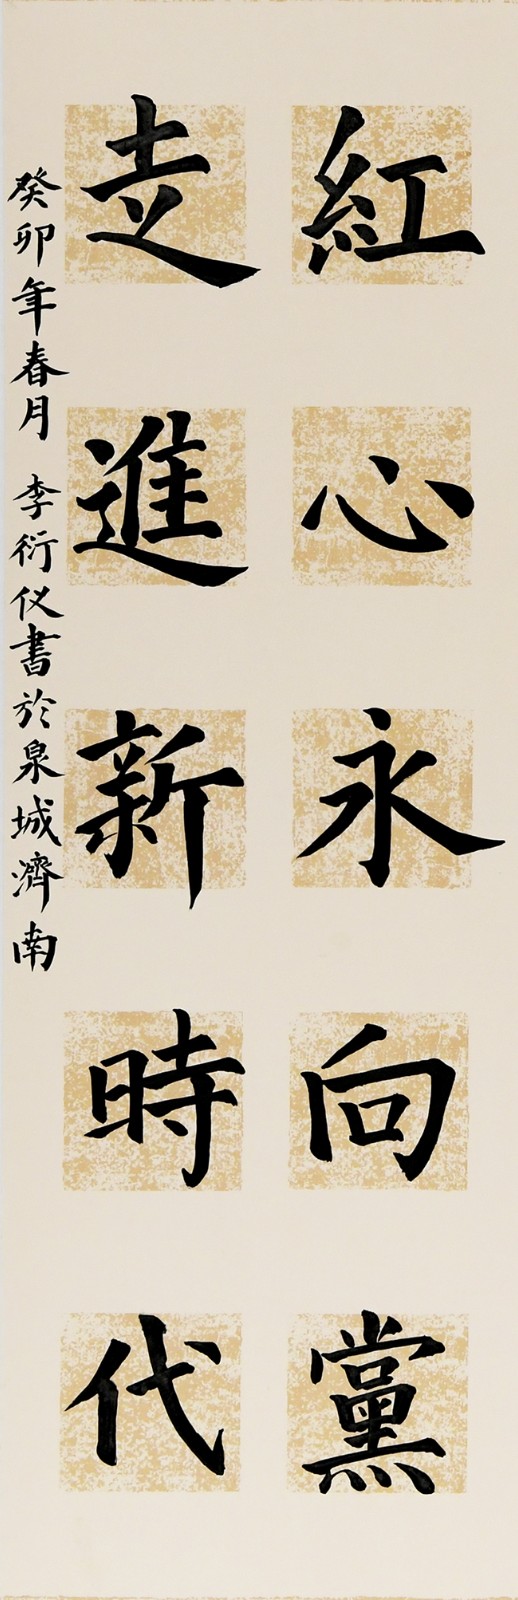 紅心永向黨
走進新時代
癸卯年春月 李衍仪書於泉城濟南